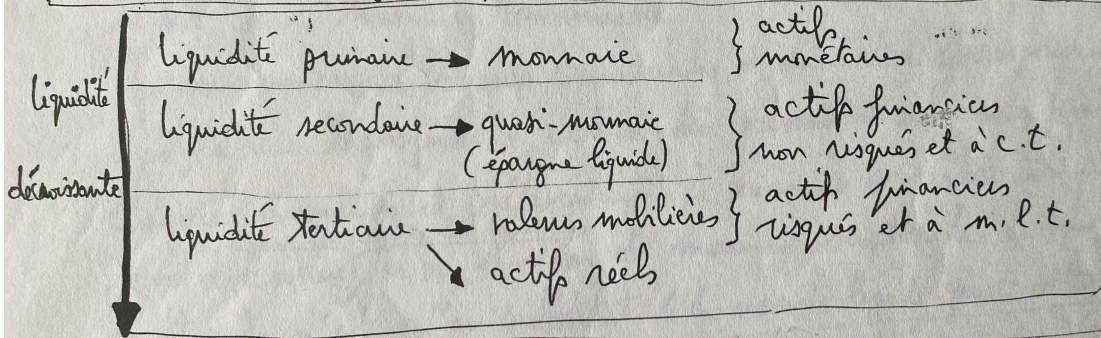 liquidité
décroissante
liquidité primaire → monnaie } actifs
monétaires
liquidité secondaire → quasi-monnaie } actifs financiers
(épargne liquide) non risqués et à c.t.
liquidité tertiaire → valeurs mobilières } actifs financiers
risqués et à m.l.t.
↘ actifs réels